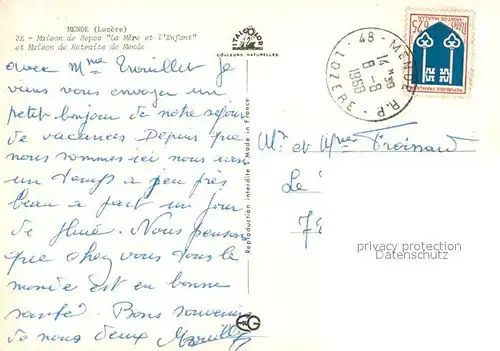 MENDE (Lozère)
3K - Maison de Repos "La Mère et l'Enfant"
et Maison de Retraite de Mende
ITALCOLOR
COULEURS NATURELLES
avec Mme Trouillet je
vous envoyer un
petit bonjour de notre séjour
de vacances Depuis que
nous sommes ici nous
un temps a peu près
beau a part un jour
de pluie. Nous pensons
que chez vous tous le
monde est en bonne
santé. Bons souvenirs
de nous deux
Reproduction interdite - Made in France
48 - MENDE R.P.
14 H30
8 - 8
1968
LOZÈRE
0,25
MONT-DE-MARSAN
REPUBLIQUE FRANCAISE
Mr et Mme Froissard
Le
7
privacy protection
Datenschutz
EG